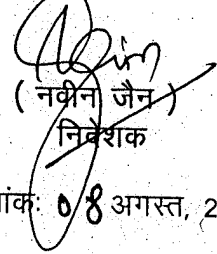 ( नवीन जैन )
निदेशक
ांकः 08 अगस्त, 2